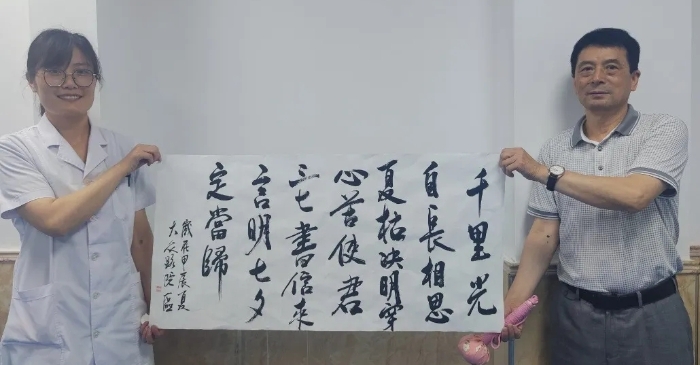 千里光
自長相思
夏枯決明穿
心苦使君
三七書信来
言明七夕
定當歸
歲在甲辰夏
大众路院區